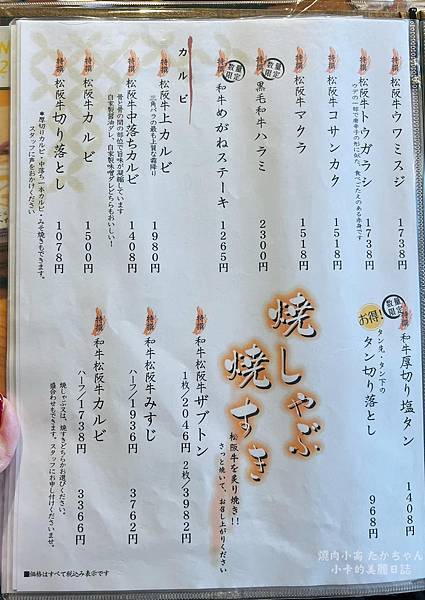 特撰 松阪牛ウワミスジ 1738円
特撰 松阪牛トウガラシ 1738円
ウデの一部で唐辛子の形に似た、食べごたえのある赤身です
特撰 松阪牛コサンカク 1518円
特撰 松阪牛マクラ 1518円
数量限定 黒毛和牛ハラミ 2300円
数量限定 特撰 和牛めがねステーキ 1265円
カルビ
特撰 松阪牛上カルビ 1980円
三角バラの最も上質な霜降り
特撰 松阪牛中落ちカルビ 1408円
骨と骨の間の部位で旨味が凝縮しています
自家製醤油ダレ、自家製味噌ダレどちらもおいしい!
特撰 松阪牛カルビ 1500円
特撰 松阪牛切り落とし 1078円
●厚切りカルビ・中落ち一本カルビ・みそ焼きもできます。
スタッフに声をおかけください
数量限定 特撰 和牛厚切り塩タン 1408円
お得! タン先・タン下の
タン切り落とし 968円
焼しゃぶ
焼すき
松阪牛を炙り焼き!!
さっと焼いて、お召し上がりください
特撰 和牛松阪牛ザブトン
1枚/2046円 2枚/3982円
特撰 和牛松阪牛みすじ
ハーフ/1936円 3762円
特撰 和牛松阪牛カルビ
ハーフ/1738円 3366円
焼しゃぶ又は、焼すきどちらかお選びください。
盛合わせもできます。スタッフにお申し付けくださいませ。
■価格はすべて税込み表示です
燒肉小高 たかちゃん
小卡的美麗日誌